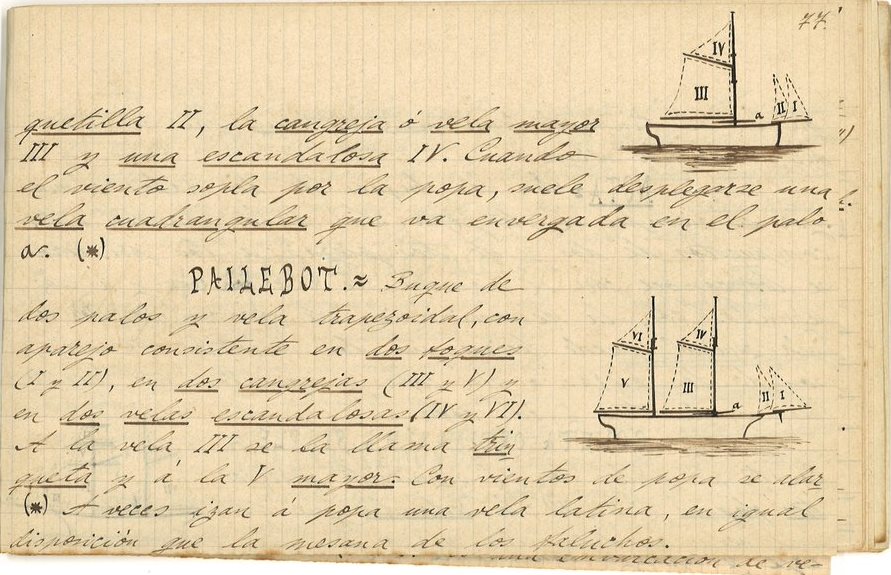 77.
IV
III
a
II
I
quetilla II, la cangreja ó vela mayor
III y una escandalosa IV. Cuando
el viento sopla por la popa, suele desplegarse una
vela cuadrangular que va envergada en el palo
a. (*)
PAILEBOT.= Buque de
dos palos y vela trapezoidal, con
aparejo consistente en dos foques
(I y II), en dos cangrejas (III y V) y
en dos velas escandalosas (IV y VI).
A la vela III se la llama trin
queta y á la V mayor. Con vientos de popa se alar
VI
IV
V
III
a
II
I
(*) A veces izan á popa una vela latina, en igual
disposición que la mesana de los faluchos.
de ve-